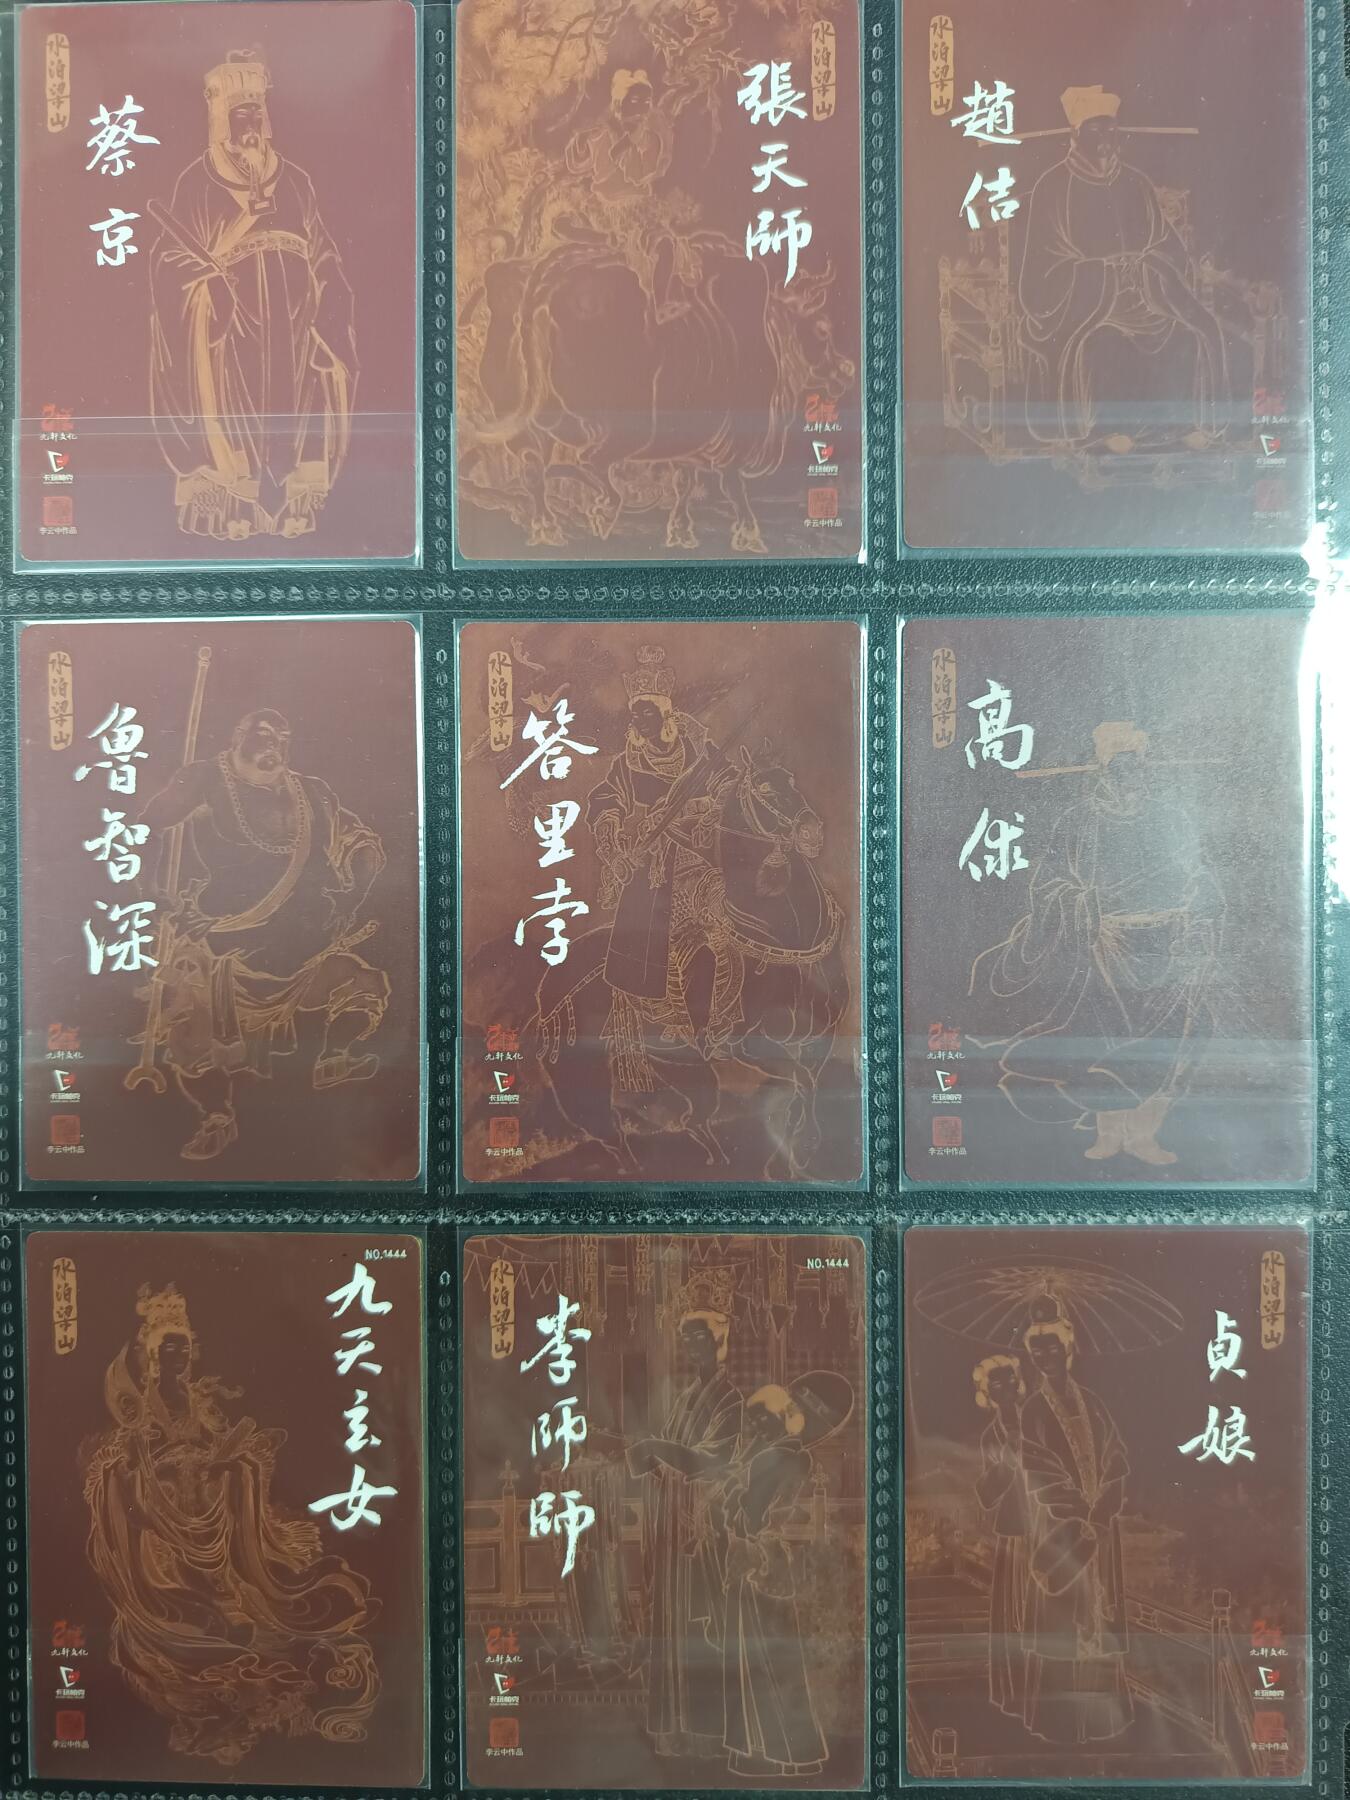 水泊梁山
蔡京
九轩文化
卡玩帕克
李云中作品
水泊梁山
張天師
九轩文化
卡玩帕克
李云中作品
水泊梁山
趙佶
李云中作品
水泊梁山
魯智深
九轩文化
卡玩帕克
李云中作品
水泊梁山
答里孛
九轩文化
卡玩帕克
李云中作品
水泊梁山
高俅
九轩文化
卡玩帕克
李云中作品
NO.1444
水泊梁山
九天玄女
九轩文化
卡玩帕克
李云中作品
NO.1444
水泊梁山
李師師
九轩文化
卡玩帕克
李云中作品
水泊梁山
貞娘
九轩文化
卡玩帕克
李云中作品